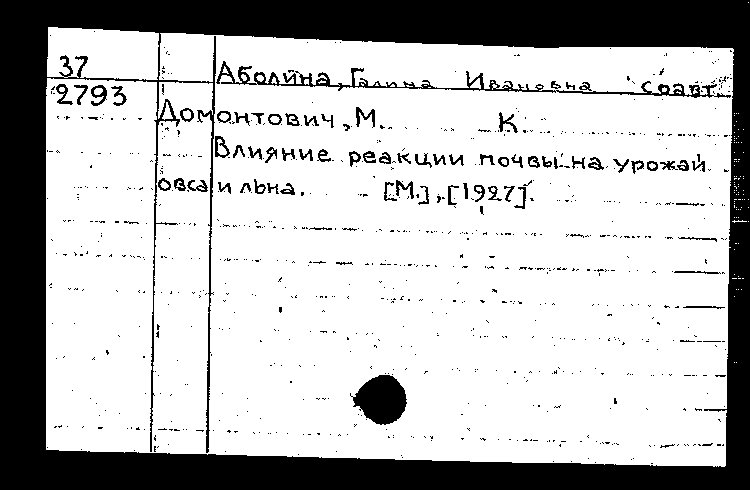 37
Аболина, Галина Ивановна соавт.
2793
Домонтович, М. К.
Влияние реакции почвы на урожай
овса и льна. [М.], [1927].